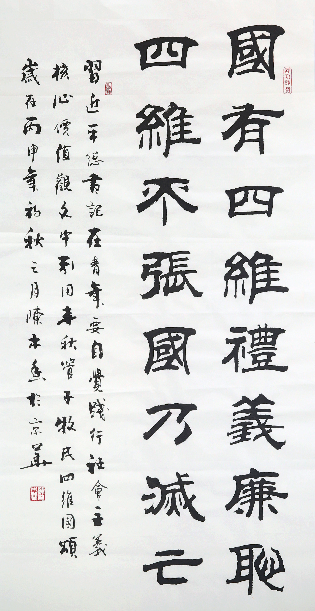 國有四維禮義廉恥
四維不張國乃滅亡
習近平總書記在青年要自覺踐行社會主義
核心價值觀文中引用春秋管子牧民四維國頌
歲在丙申年初秋之月陳木魚於京華